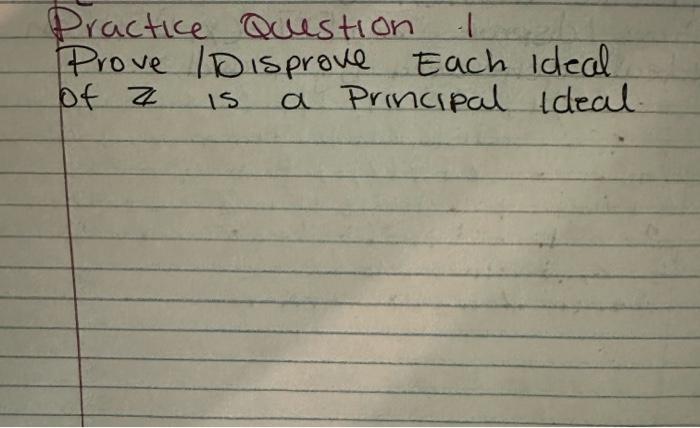 Practice Question 1
Prove / Disprove Each ideal
of ℤ is a Principal ideal.